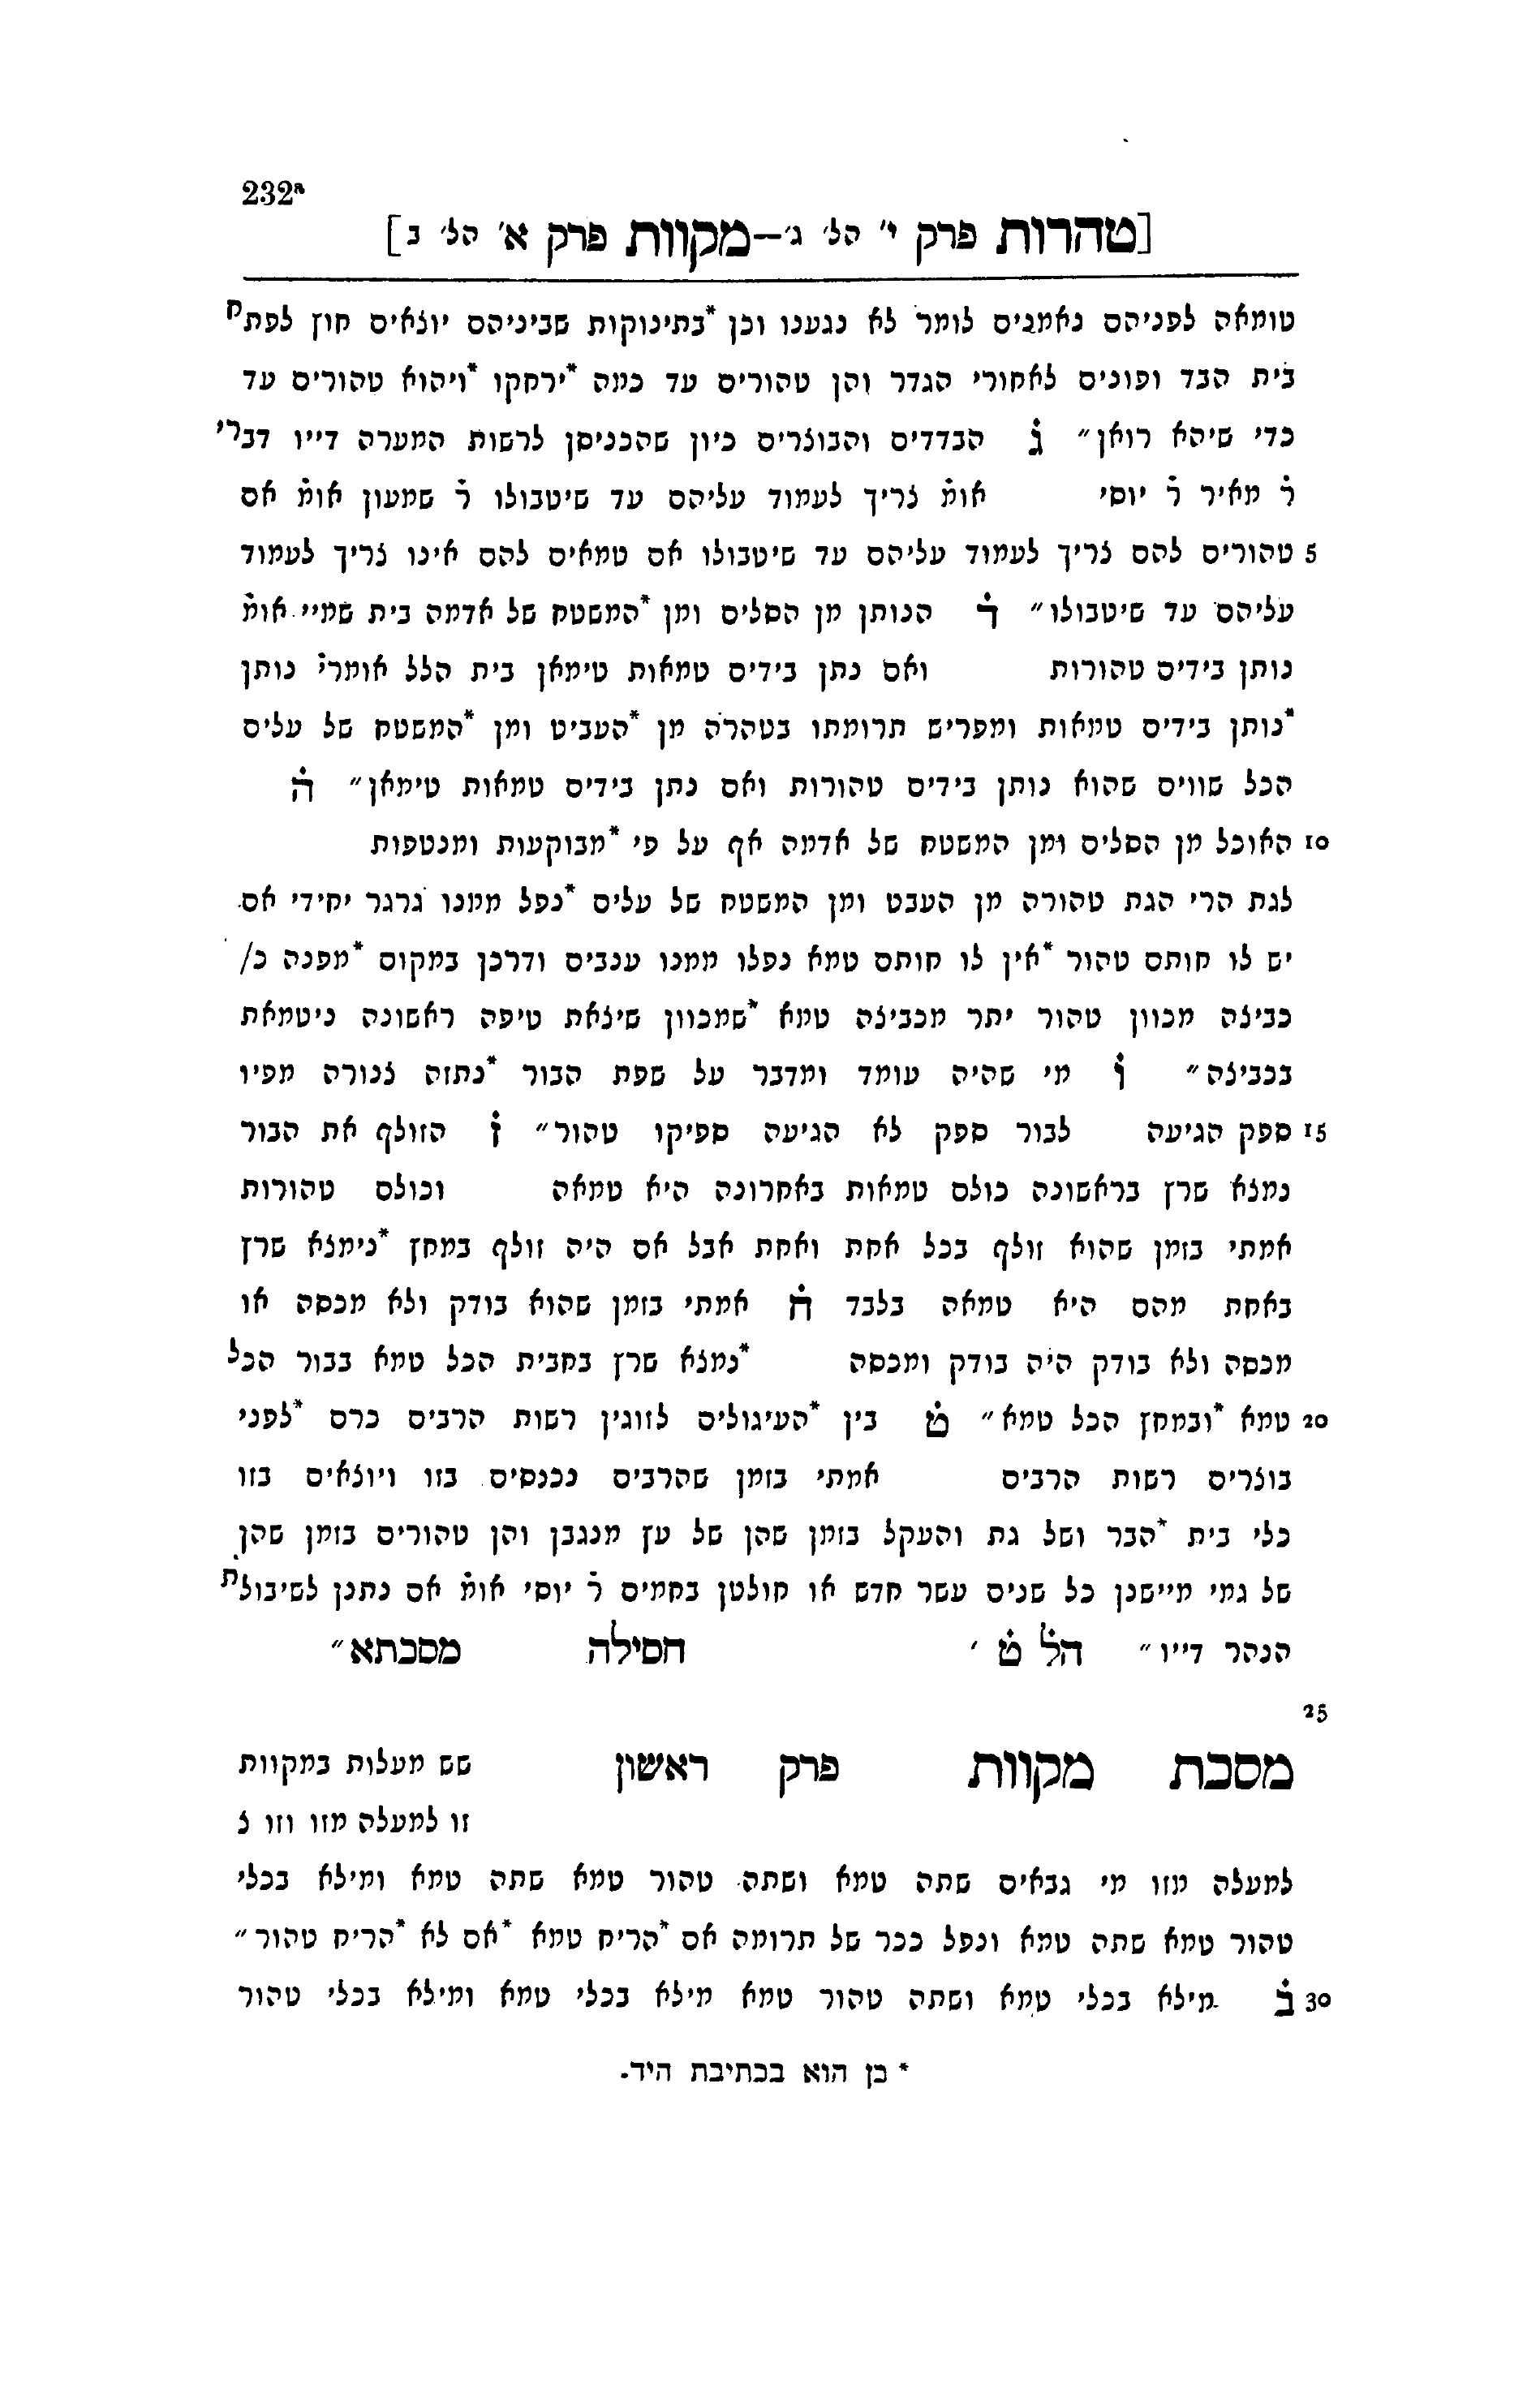 232ª
[טהרות פרק י׳ הל׳ ג׳—מקוות פרק א׳ הל׳ ב]
טומאה לפניהם נאמנים לומר לא נגענו וכן *בתינוקות שביניהם יוצאים חוץ לפתח
בית הבד ופונים לאחורי הגדר והן טהורים עד כמה *ירחקו *ויהוא טהורים עד
כדי שיהא רואן״ ג הבדדים והבוצרים כיון שהכניסן לרשות המערה דייו דברי
ר׳ מאיר ר׳ יוסי אומ׳ צריך לעמוד עליהם עד שיטבולו ר׳ שמעון אומ׳ אם
5 טהורים להם צריך לעמוד עליהם עד שיטבולו אם טמאים להם אינו צריך לעמוד
עליהם עד שיטבולו״ ד הנותן מן הסלים ומן *המשטח של אדמה בית שמיי אומ׳
נותן בידים טהורות ואם נתן בידים טמאות טימאן בית הלל אומרי׳ נותן
*נותן בידים טמאות ומפריש תרומתו בטהרה מן *העביט ומן *המשטח של עלים
הכל שווים שהוא נותן בידים טהורות ואם נתן בידים טמאות טימאן״ ה
10 האוכל מן הסלים ומן המשטח של אדמה אף על פי *מבוקעות ומנטפות
לגת הרי הגת טהורה מן העבט ומן המשטח של עלים *נפל ממנו גרגר יחידי אם
יש לו חותם טהור *אין לו חותם טמא נפלו ממנו ענבים ודרכן במקום *מפנה כ/
כביצה מכוון טהור יתר מכביצה טמא *שמכוון שיצאת טיפה ראשונה ניטמאת
בכביצה״ ו מי שהיה עומד ומדבר על שפת הבור *נתזה צנורה מפיו
15 ספק הגיעה לבור ספק לא הגיעה ספיקו טהור״ ז הזולף את הבור
נמצא שרץ בראשונה כולם טמאות באחרונה היא טמאה וכולם טהורות
אמתי בזמן שהוא זולף בכל אחת ואחת אבל אם היה זולף במחץ *נימצא שרץ
באחת מהם היא טמאה בלבד ח אמתי בזמן שהוא בודק ולא מכסה או
מכסה ולא בודק היה בודק ומכסה *נמצא שרץ בחבית הכל טמא בבור הכל
20 טמא *ובמחץ הכל טמא״ ט בין *העיגולים לזוגין רשות הרבים כרם *לפני
בוצרים רשות הרבים אמתי בזמן שהרבים נכנסים בזו ויוצאים בזו
כלי בית *הבר ושל גת והעקל בזמן שהן של עץ מנגבן והן טהורים בזמן שהן
של גמי מיישנן כל שנים עשר חדש או חולטן בחמים ר׳ יוסי אומ׳ אם נתנן לשיבולת
הנהר דייו״ הל׳ ט׳ חסילה מסכתא״
25
מסכת מקוות פרק ראשון שש מעלות במקוות
זו למעלה מזו וזו ל
למעלה מזו מי גבאים שתה טמא ושתה טהור טמא שתה טמא ומילא בכלי
טהור טמא שתה טמא ונפל ככר של תרומה אם *הריח טמא *אם לא *הריח טהור״
30 ב מילא בכלי טמא ושתה טהור טמא מילא בכלי טמא ומילא בכלי טהור
* כן הוא בכתיבת היד.